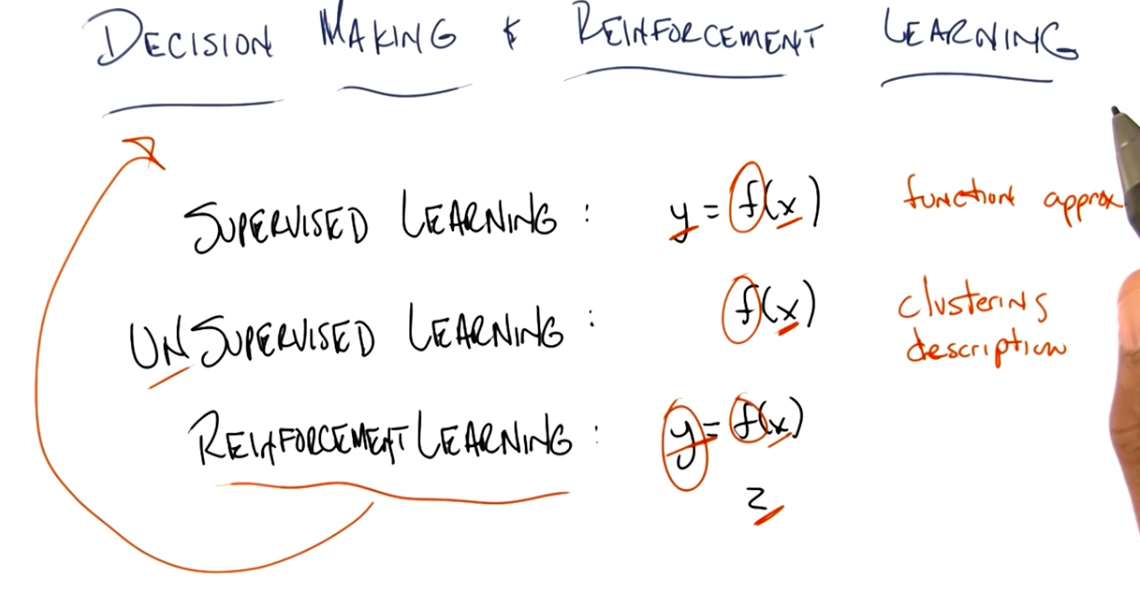 DECISION MAKING & REINFORCEMENT LEARNING
SUPERVISED LEARNING : y = f(x) function approx
UNSUPERVISED LEARNING : f(x) clustering
description
REINFORCEMENT LEARNING : y = f(x)
z